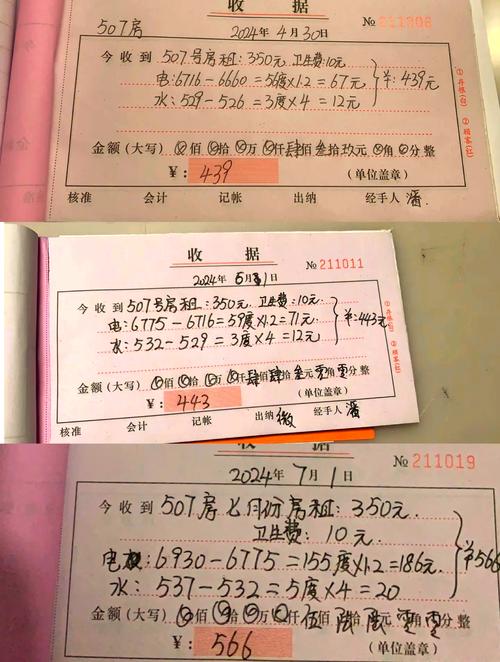 收 据
507房
2024年4月30日
№ 211006
今收到507号房租:350元 卫生费:10元
电:6716-6660=56度×1.2=67元
¥:439元
水:529-526=3度×4=12元
金额(大写)⊗佰⊗拾⊗万⊗仟肆佰叁拾玖元⊗角⊗分整
¥:439
(单位盖章)
核准 会计 记帐 出纳 经手人 潘
①存根(白)
②顾客(红)
收 据
2024年5月31日
№ 211011
今收到507号房租:350元 卫生费:10元
电:6775-6716=59度×1.2=71元
¥:443元
水:532-529=3度×4=12元
金额(大写)⊗佰⊗拾⊗万⊗仟肆佰肆拾叁元零角零分整
¥:443
(单位盖章)
核准 会计 记帐 出纳 经手人 潘
①存根(白)
②顾客(红)
收 据
2024年7月1日
№ 211019
今收到507房七月份房租:350元
卫生费:10元
电:6930-6775=155度×1.2=186元
¥566
水:537-532=5度×4=20
金额(大写)⊗佰⊗拾⊗万⊗仟伍佰陆拾陆元零角零分整
¥:566
(单位盖章)